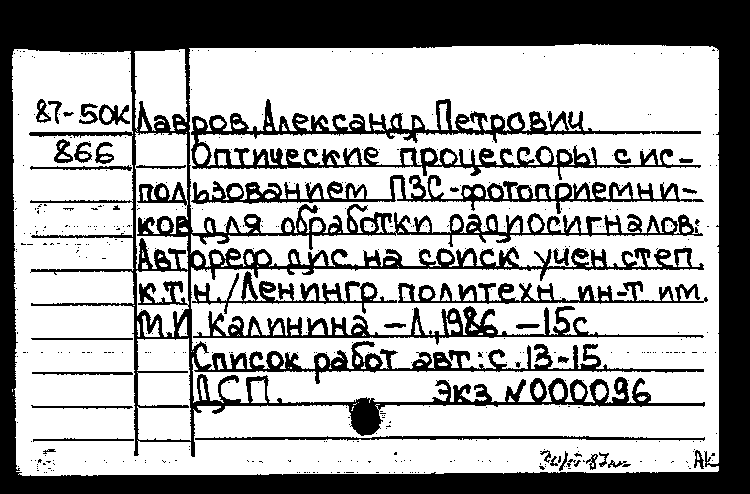 87-50К Лавров, Александр Петрович.
866 Оптические процессоры с ис-
пользованием ПЗС-фотоприемни-
ков для обработки радиосигналов:
Автореф. дис. на соиск. учен. степ.
к.т.н. /Ленингр. политехн. ин-т им.
М.И. Калинина. - Л., 1986. - 15с.
Список работ авт.: с. 13-15.
ДСП. Экз N000096
АК